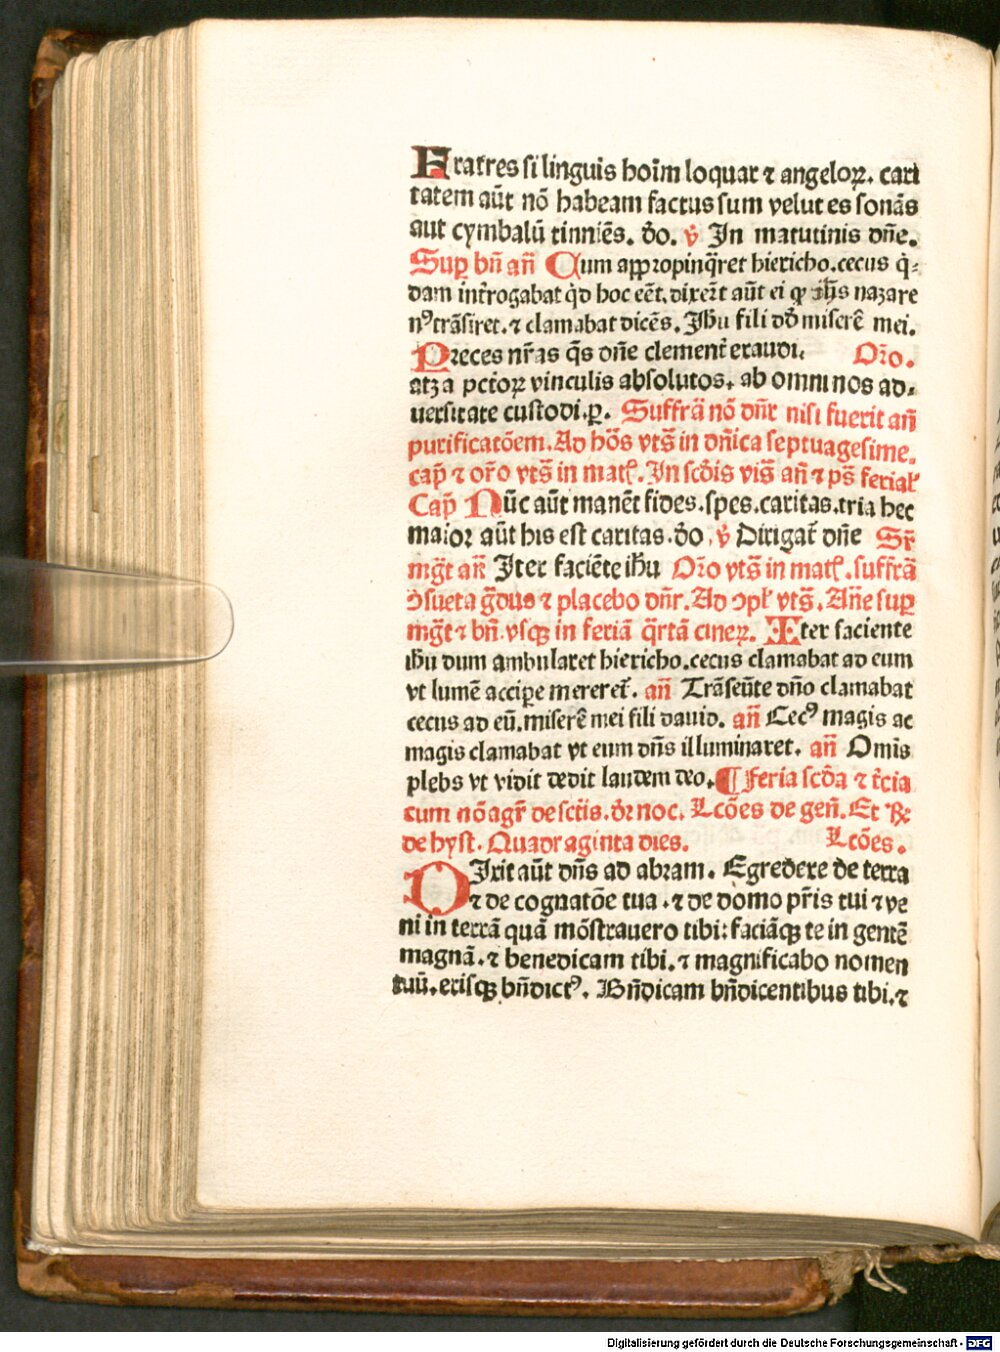 Fratres si linguis hoīm loquar ⁊ angeloꝝ. cari
tatem aūt nō habeam factus sum velut es sonās
aut cymbalū tinniēs. do. ꝟ In matutinis dn̄e.
Suꝑ bn̄ an̄ Cum appropinq̄ret hiericho.cecus q̇-
dam int̄rogabat qd̓ hoc eēt.dixer̄t aūt ei ꝙ ihs̄ nazare
nꝰ trāsiret.⁊ clamabat dicēs. Jhu fili dd̓ miserē mei.
Preces nr̄as qs̄ dn̄e clement̄ exaudi. Or̄o.
atꝫ a pctoꝝ vinculis absolutos. ab omni nos ad-
uersitate custodi.ꝑ. Suffrā nō dn̄r nisi fuerit an̄
purificatōem. Ad hōs vts̄ in dn̄ica septuagesime.
cap̄ ⁊ or̄o vts̄ in matꝭ. In scd̄is vis̄ an̄ ⁊ ps̄ ferial̓
Cap̄ Nūc aūt manēt fides.spes.caritas.tria hec
maior aūt his est caritas.do ꝟ Dirigat̄ dn̄e Sr̄
mḡt an̄ Iter faciēte ihu Or̄o vts̄ in matꝭ.suffrā
ↄsueta ḡdus ⁊ placebo dn̄r. Ad ↄpl̓ vts̄. Ane suꝑ
mḡt ⁊ bn̄.vsqꝫ in feriā q̄rtā cineꝝ. Iter faciente
ihu dum ambularet hiericho.cecus clamabat ad eum
vt lumē accipe mereret̄. an̄ Trāseūte dn̄o clamabat
cecus ad eū.miserē mei fili dauid. an̄ Cecꝰ magis ac
magis clamabat vt eum dn̄s illuminaret. an̄ Omīs
plebs vt vidit dedit laudem deo. ¶ Feria scd̄a ⁊ t̄cia
cum nō agr̄ de sctīs. dr̄ noc. Lcōes de gen̄. Et ℞
de hyst. Quadraginta dies. Lcōes.
Dixit aūt dn̄s ad abram. Egredere de terra
⁊ de cognatōe tua.⁊ de domo pr̄is tui ⁊ ve
ni in terrā quā mōstrauero tibi: faciāqꝫ te in gentē
magnā.⁊ benedicam tibi.⁊ magnificabo nomen
tuū.erisqꝫ bn̄dictꝰ. Bn̄dicam bn̄dicentibus tibi.⁊
Digitalisierung gefördert durch die Deutsche Forschungsgemeinschaft - DFG